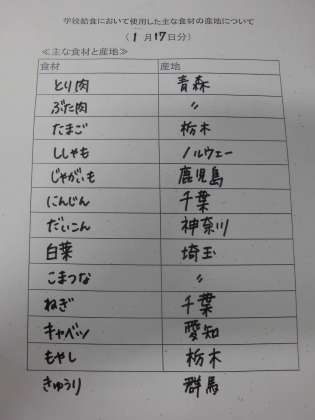 学校給食において使用した主な食材の産地について
(1月17日分)
≪主な食材と産地≫
食材 産地
とり肉 青森
ぶた肉 〃
たまご 栃木
ししゃも ノルウェー
じゃがいも 鹿児島
にんじん 千葉
だいこん 神奈川
白菜 埼玉
こまつな 〃
ねぎ 千葉
キャベツ 愛知
もやし 栃木
きゅうり 群馬